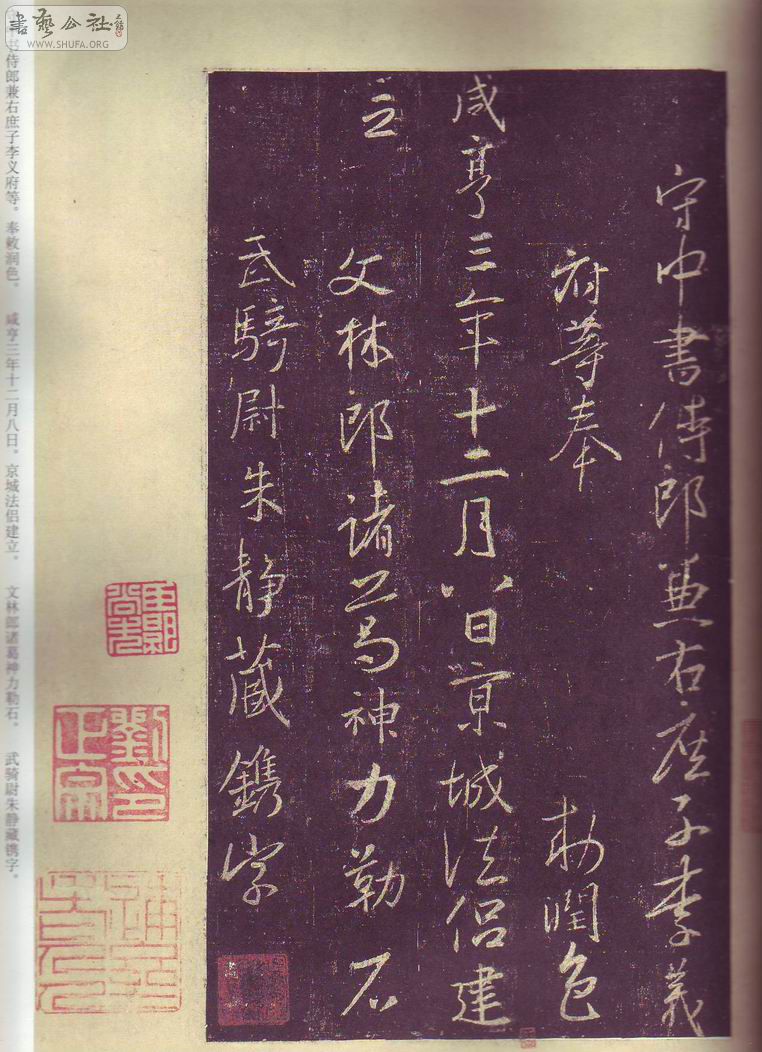 書藝公社
WWW.SHUFA.ORG
守中書侍郎兼右庶子李義
府等奉 勅潤色
咸亨三年十二月八日京城法侶建
立 文林郎諸葛神力勒石
武騎尉朱靜藏鐫字
书侍郎兼右庶子李义府等。奉敕润色。 咸亨三年十二月八日。京城法侣建立。 文林郎诸葛神力勒石。 武骑尉朱静藏镌字。
劉正宗印